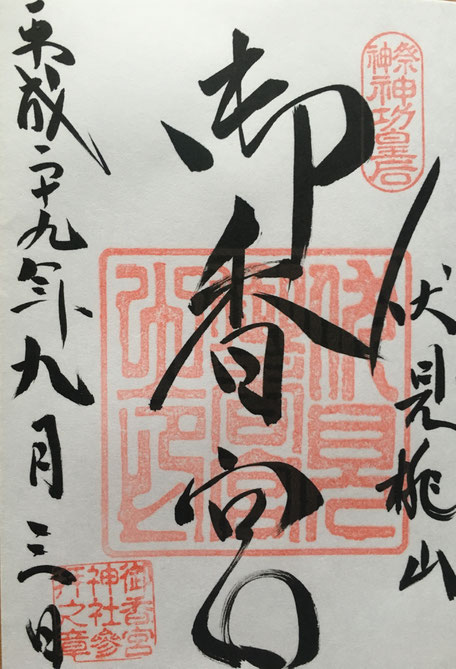 祭神
神功皇后
伏見桃山
御香宮
伏見
御香宮
之印
平成二十九年九月三日
御香宮
神社參
拜之章